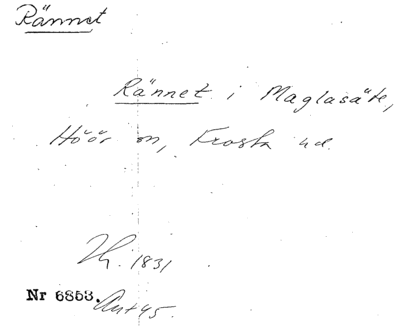 Rännet
Rännet i Maglasäte,
Höör sn, Frosta hd.
1831
Nr 6853.